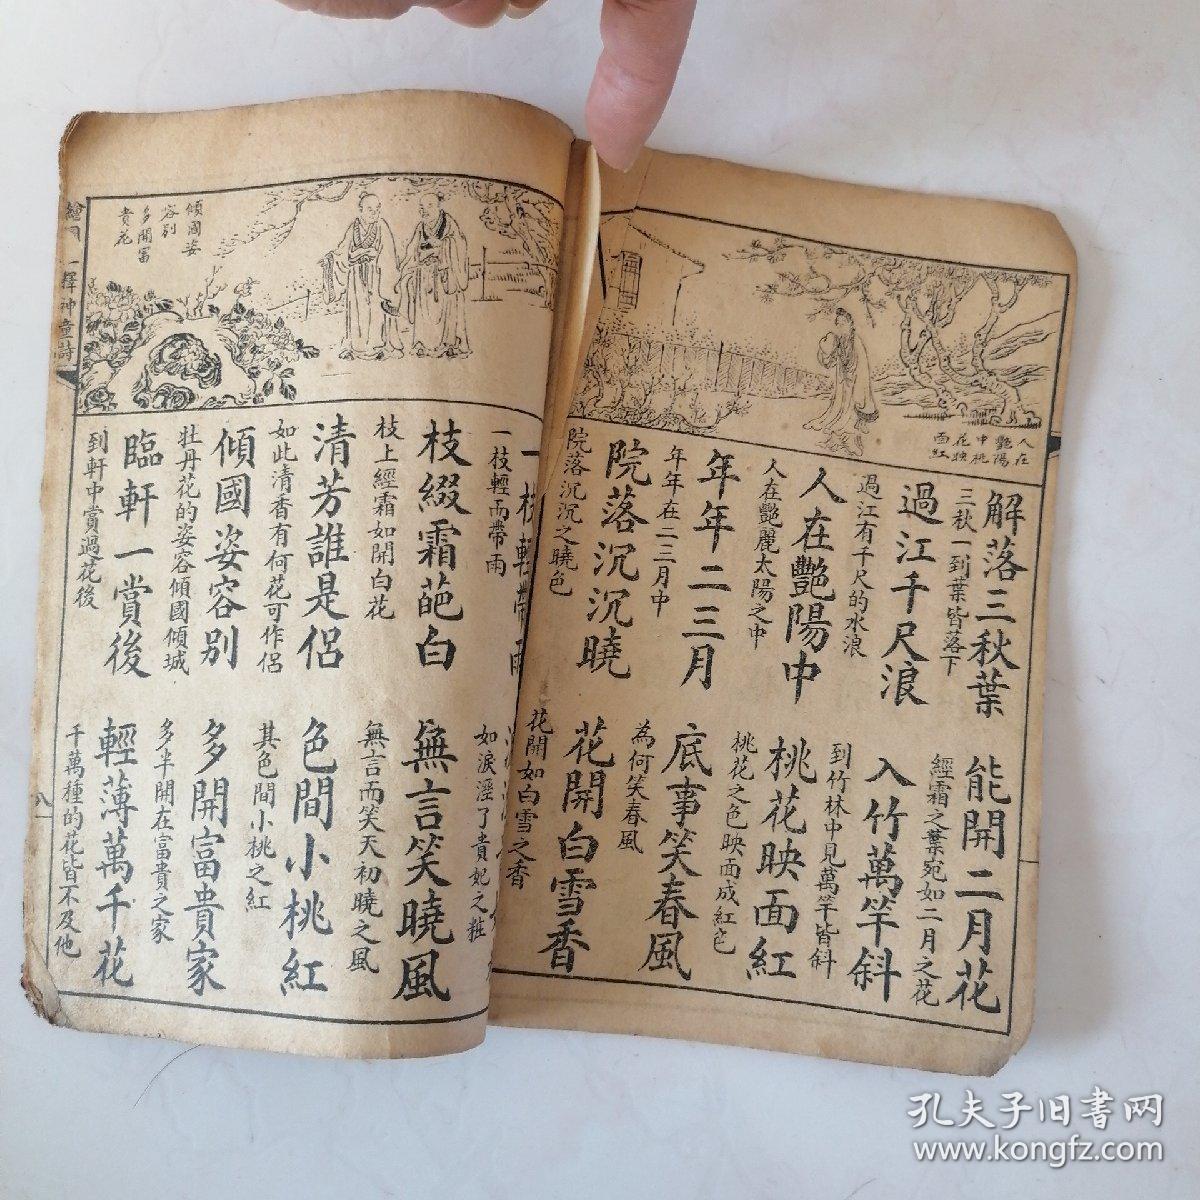 人在
艷陽
中桃
花映
面紅
解落三秋葉
三秋一到葉皆落下
能開二月花
經霜之葉宛如二月之花
過江千尺浪
過江有千尺的水浪
入竹萬竿斜
到竹林中見萬竿皆斜
人在艷陽中
人在艷麗太陽之中
桃花映面紅
桃花之色映面成紅色
年年二三月
年年在二三月中
底事笑春風
為何笑春風
院落沉沉曉
院落沉沉之曉色
花開白雪香
花開如白雪之香
傾國姿
容別
多開富
貴花
一枝輕帶雨
一枝輕而帶雨
如淚溼了貴妃之粧
枝綴霜葩白
枝上經霜如開白花
無言笑曉風
無言而笑天初曉之風
清芳誰是侶
如此清香有何花可作侶
色間小桃紅
其色間小桃之紅
傾國姿容別
牡丹花的姿容傾國傾城
多開富貴家
多半開在富貴之家
臨軒一賞後
到軒中賞過花後
輕薄萬千花
千萬種的花皆不及他
釋神童詩
八
孔夫子旧书网
www.kongfz.com